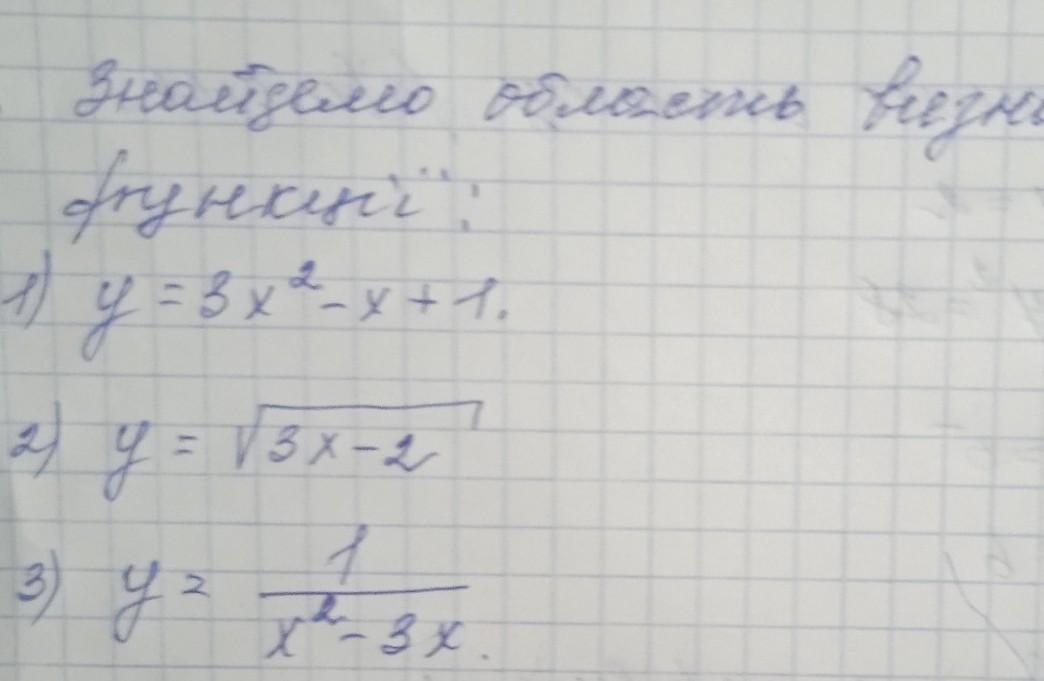 Знайдемо область визна
функції:
1) y = 3x² - x + 1.
2) y = √3x-2
3) y = 1
x² - 3x.